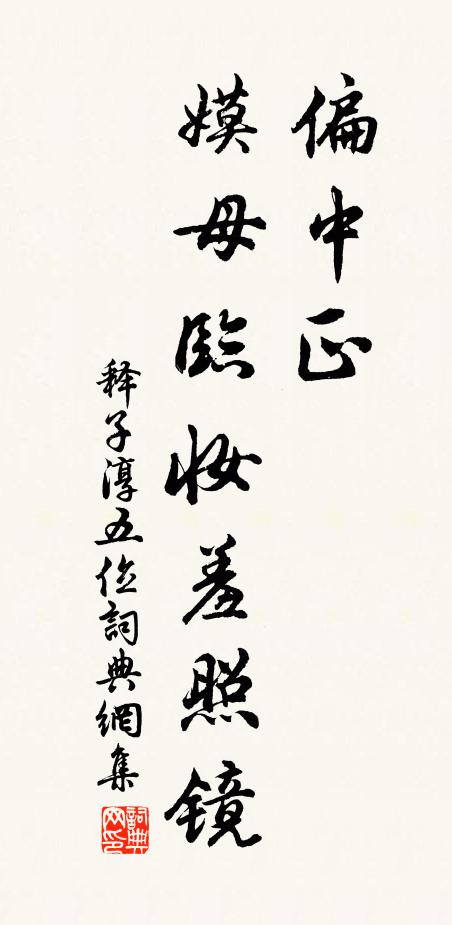 偏中正
嫫母臨妝羞照镜
释子淳五位詞典網集
詞典
网印